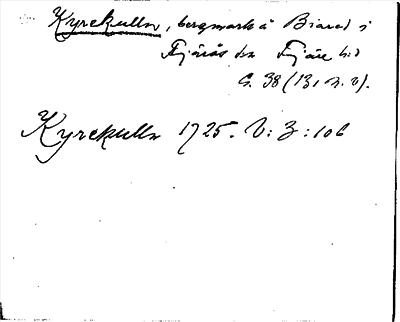 Kyrekulln, bergmark å Biared i
Fjärås sn Fjäre hd
G. 38 (13, n. v).
Kyrekulln 1725. V: 3: 106